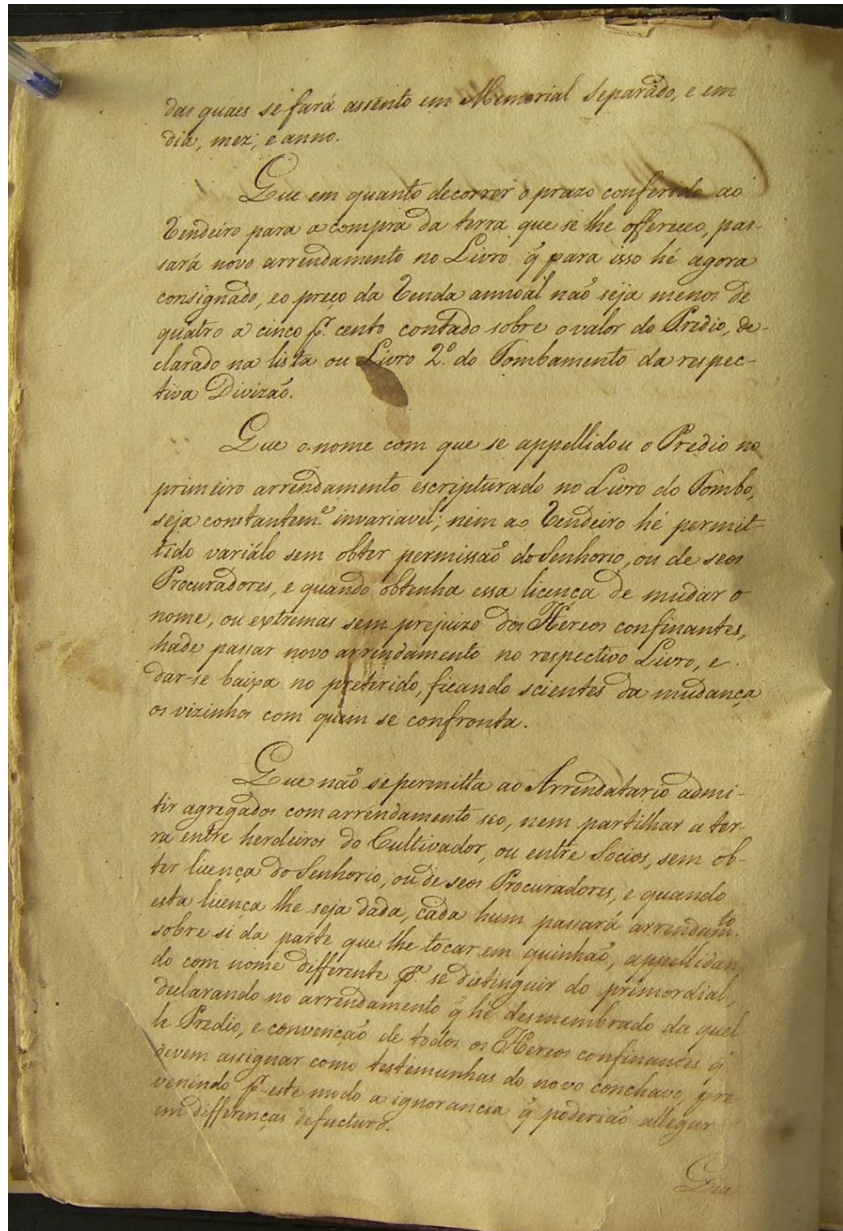 das quaes se fará assento em Memorial separado, e em
dia, mez, e anno.
Que em quanto decorrer o prazo conferido ao
Rendeiro para a compra da terra que se lhe offereceo, pas-
sará novo arrendamento no Livro q̃ para isso hé agora
consignado, e o preço da Renda annoal não seja menos de
quatro a cinco p.r cento contado sobre o valor do Predio, de-
clarado na lista ou Livro 2.º do Tombamento da respec-
tiva Divizão.
Que o nome com que se appellidou o Predio no
primeiro arrendamento escripturado no Livro do Tombo,
seja constantem.e invariavel; nem ao Rendeiro hé permit-
tido variálo sem obter permissão do Senhorio, ou de seos
Procuradores, e quando obtenha essa licença de mudar o
nome, ou extremas sem prejuizo dos Hereos confinantes,
hade passar novo arrendamento no respectivo Livro, e
dar-se baixa no preterido, ficando scientes da mudança
os vizinhos com quem se confronta.
Que não se permitta ao Arrendatario admi-
tir agregados com arrendamento seo, nem partilhar a ter-
ra entre herdeiros do Cultivador, ou entre Socios, sem ob-
ter licença do Senhorio, ou de seos Procuradores, e quando
esta licença lhe seja dada, cada hum passará arrendam.to
sobre si da parte que lhe tocar em quinhão, appellidan-
do com nome differente p.a se distinguir do primordial,
declarando no arrendamento q̃ hé desmembrado da quel-
le Predio, e convenção de todos os Hereos confinantes q̃
devem assignar como testemunhas do novo conchavo, pre
venindo p.r este modo a ignorancia q̃ poderião allegar
em differenças de fucturo.
Que